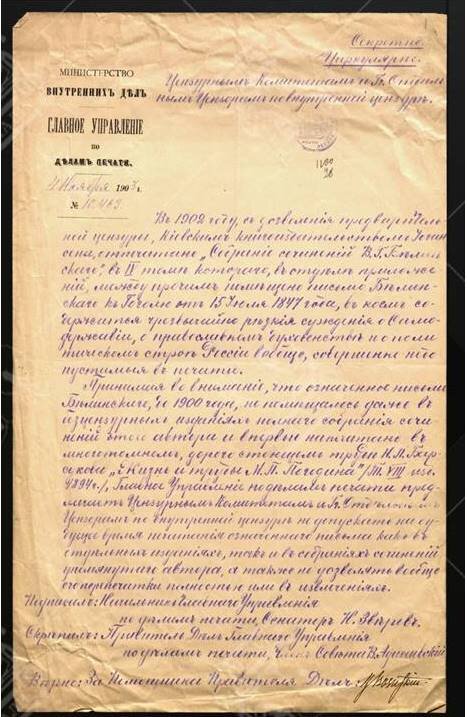 Секретно.
Циркулярно.
МИНИСТЕРСТВО
ВНУТРЕННИХЪ ДѢЛЪ
ГЛАВНОЕ УПРАВЛЕНІЕ
ПО
ДѢЛАМЪ ПЕЧАТИ.
Цензурнымъ Комитетамъ и Гг. Отдѣль-
нымъ Цензорамъ по внутренней цензурѣ.
4 Ноября 1903 г.
№
Въ 1902 году, съ дозволенія предваритель-
ной цензуры, Кіевскимъ книгоиздательствомъ Іоган-
сона, отпечатано „Собраніе сочиненій В. Г. Бѣлин-
скаго", въ IV томѣ котораго, въ приложе-
ній, между прочимъ помѣщено письмо Бѣлин-
скаго къ Гоголю отъ 15 Іюля 1847 года, въ коемъ со-
держатся чрезвычайно рѣзкія сужденія о Само-
державіи, о православномъ духовенствѣ и о поли-
тическомъ строѣ Россіи вообще, совершенно недо-
пустимыя въ печати.
Принимая во вниманіе, что означенное письмо
Бѣлинскаго, до 1900 года, не помѣщалось даже въ
изданіяхъ полнаго собранія сочи-
неній этого автора и впервые напечатано въ
многотомномъ, дорого стоющемъ трудѣ Н. П. Бар-
сукова „Жизнь и труды М. П. Погодина" /т. VIII изд.
1894 г./, Главное Управленіе по дѣламъ печати пред-
лагаетъ Цензурнымъ Комитетамъ и Гг. Отдѣльнымъ
Цензорамъ по внутренней цензурѣ не допускать на бу-
дущее время печатанія означеннаго письма какъ въ
отдѣльныхъ изданіяхъ, такъ и въ собраніяхъ сочиненій
упомянутаго автора, а также не дозволять вообще
его перепечатки полностью или въ извлеченіяхъ.
Подписалъ: Начальникъ Главнаго Управленія
по дѣламъ печати, Сенаторъ Н. Звѣревъ.
Скрѣпилъ: Правитель Дѣлъ Главнаго Управленія
по дѣламъ печати, Членъ Совѣта В. Адикаевскій
Вѣрно: За Помощника Правителя Дѣлъ: